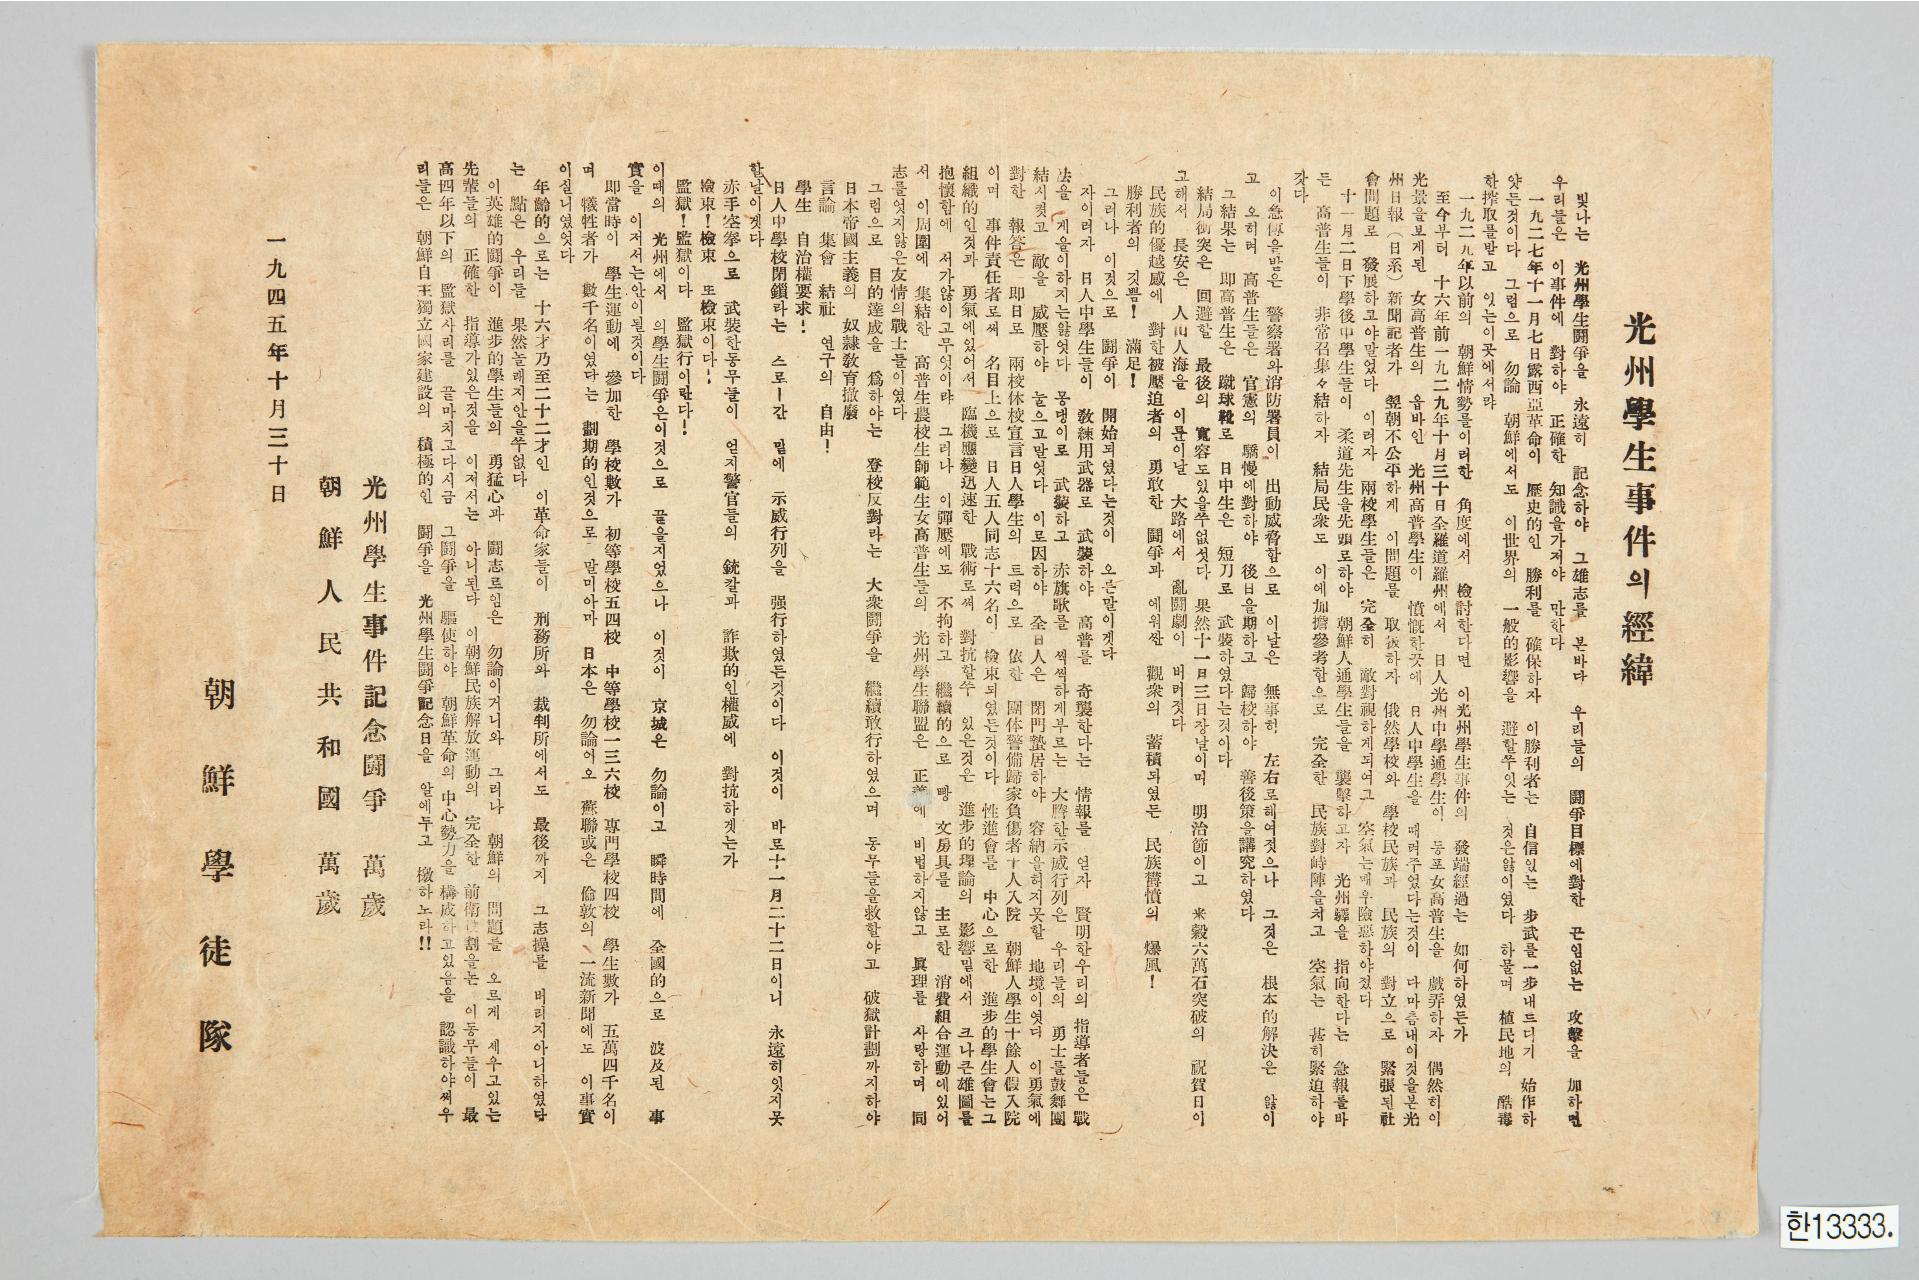 光州學生事件의經緯
빛나는 光州學生鬪爭을 永遠히 記念하야 그雄志를 본바다 우리들의 鬪爭目標에對한 끈임없는 攻擊을 加하면
우리들은 이事件에 對하야 正確한 知識을가저야 만한다
一九二七年十一月七日露西亞革命이 歷史的인 勝利를 確保하자 이勝利者는 自信있는 步武를一步내드디기 始作하
얏든것이다 그럼으로 勿論 朝鮮에서도 이世界의 一般的影響을 避할수잇는 것은않이였다 하물며 植民地의 酷毒
한搾取를받고 잇는이곳에서랴
一九二九年以前의 朝鮮情勢를이러한 角度에서 檢討한다면 이光州學生事件의 發端經過는 如何하였든가
至今부터 十六年前一九二九年十月三十日全羅道羅州에서 日人光州中學通學生이 동포女高普生을 戱弄하자 偶然히이
光景을보게된 女高普生의 옵바인 光州高普學生이 憤慨한끗에 日人中學生을 때려주었다는것이 다마츰내이것을본光
州日報(日系)新聞記者가 翌朝不公平하게 이問題를 取扱하자 俄然學校와 學校民族과 民族의 對立으로 緊張된社
會問題로 發展하고야말었다 이러자 兩校學生들은 完全히 敵對視하게되여고 空氣는매우險惡하야졌다
十一月二日下學後中學生들이 柔道先生을先頭로하야 朝鮮人通學生들을 襲擊하고자 光州驛을 指向한다는 急報를바
든 高普生들이 非常召集々結하자 結局民衆도 이에加擔參考함으로 完全한 民族對峙陣을처고 空氣는 甚히緊迫하야
갓다
이急傳을받은 警察署와消防署員이 出動威脅함으로 이날은 無事히 左右로해여젓으나 그것은 根本的解決은 않이
고 오히려 高普生들은 官憲의 驕慢에對하야 後日을期하고 歸校하야 善後策을講究하였다
그結果는 即高普生은 蹴球靴로 日中生은 短刀로 武裝하였다는것이다
結局衝突은 回避할 最後의 寬容도있을수없섯다 果然十一日三日장날이며 明治節이고 米穀六萬石突破의 祝賀日이
고해서 長安은 人山人海을 이룬이날 大路에서 亂鬪劇이 버려젓다
民族的優越感에 對한被壓迫者의 勇敢한 鬪爭과 에워싼 觀衆의 蓄積되였든 民族欝憤의 爆風!
勝利者의 깃쁨! 滿足!
그러나 이것으로 鬪爭이 開始되였다는것이 오른말이겟다
자이러자 日人中學生들이 敎練用武器로 武裝하야 高普를 奇襲한다는 情報를 얻자 賢明한우리의 指導者들은 戰
法을 게을이하지는않엇다 몽댕이로 武裝하고 赤旗歌를 씩씩하게부르는 大膽한示威行列은 우리들의 勇士를鼓舞團
結시켯고 敵을 威壓하야 눌으고말엇다 이로因하야 全日人은 閉門蟄居하야 容納을허지못할 地境이엿다 이勇氣에
對한 報答은 即日로 兩校休校宣言日人學生의 트럭으로 依한 團体警備歸家負傷者十人入院 朝鮮人學生十餘人假入院
이며 事件責任者로써 名目上으로 日人五人同志十六名이 檢束되였든것이다 性進會를 中心으로한 進步的學生會는그
組織的인것과 勇氣에있어서 臨機應變迅速한 戰術로써 對抗할수 있은것은 進步的理論의 影響밑에서 크나큰雄圖를
抱懷함에 서가않이고무엇이랴 그러나 이彈壓에도 不拘하고 繼續的으로 빵 文房具를 主로한 消費組合運動에있어
서 이周圍에 集結한 高普生農校生師範生女高普生들의 光州學生聯盟은 正義에 비법하지않고 眞理를 사랑하며 同
志를엇지않은友情의戰士들이였다
그럼으로 目的達成을 爲하야는 登校反對라는 大衆鬪爭을 繼續敢行하였으며 동무들을救할야고 破獄計劃까지하야
日本帝國主義의 奴隷敎育撤廢
言論 集會 結社 연구의 自由!
學生 自治權要求!
日人中學校閉鎖라는 스로ㅡ간 밑에 示威行列을 强行하였든것이다 이것이 바로十一月二十二日이니 永遠히잇지못
할날이겟다
赤手空拳으로 武裝한동무들이 얻지警官들의 銃칼과 詐欺的인權威에 對抗하겟는가
檢束!檢束 또檢束이다!
監獄!監獄이다 監獄行이란다!
이때의 光州에서 의學生鬪爭은이것으로 끝을지었으나 이것이 京城은 勿論이고 瞬時間에 全國的으로 波及된 事
實을 이저서는안이될것이다
即當時이 學生運動에 參加한 學校數가 初等學校五四校 中等學校一三六校 專門學校四校 學生數가 五萬四千名이
며 犧牲者가 數千名이였다는 劃期的인것으로 말미아마 日本은 勿論어오 蘇聯或은 倫敦의 一流新聞에도 이事實
이실니였엇다
年齡的으로는 十六才乃至二十二才인 이革命家들이 刑務所와 裁判所에서도 最後까지 그志操를 버리지아니하였다
는 點은 우리들 果然놀래지안을수없다
이英雄的鬪爭이 進步的學生들의 勇猛心과 鬪志로임은 勿論이거니와 그러나 朝鮮의 問題를 오르게 세우고있는
先輩들의 正確한 指導가있은것을 이저서는 아니된다 이朝鮮民族解放運動의 完全한 前衛 割을논 이동무들이 最
高四年以下의 監獄사리를 끝마치고다시금 그鬪爭을 驅使하야 朝鮮革命의 中心勢力을 構成하고있음을 認識하야써우
리들은 朝鮮自主獨立國家建設의 積極的인 鬪爭을 光州學生鬪爭記念日을 앞에두고 檄하노라!!
光州學生事件記念鬪爭 萬歲
朝鮮人民共和國 萬歲
一九四五年十月三十日
朝鮮學徒隊
한13333.